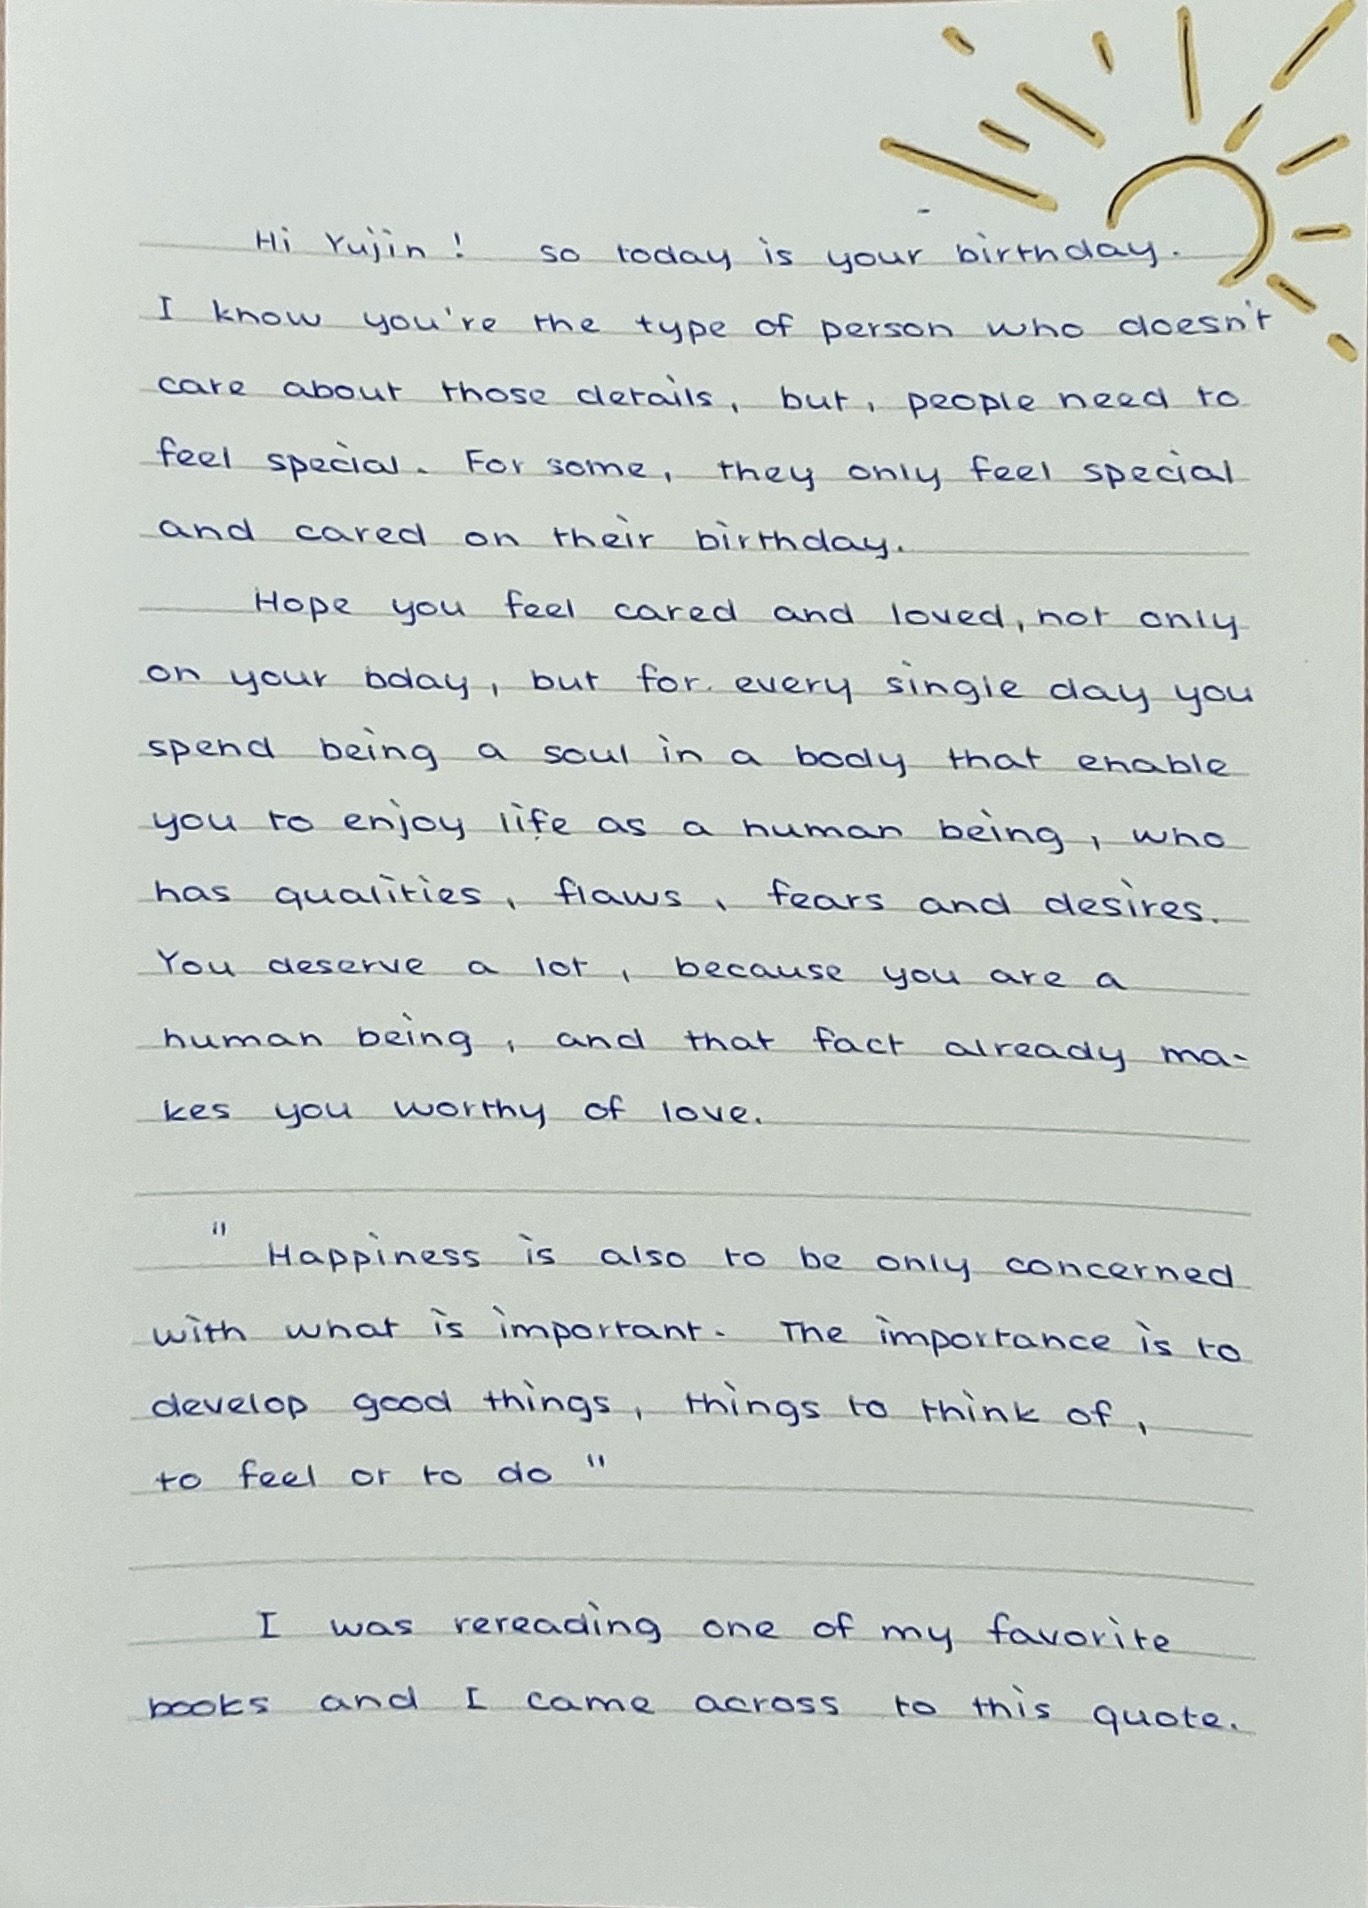 Hi Yujin! so today is your birthday.
I know you're the type of person who doesn't
care about those details, but, people need to
feel special. For some, they only feel special
and cared on their birthday.
Hope you feel cared and loved, not only
on your bday, but for every single day you
spend being a soul in a body that enable
you to enjoy life as a human being, who
has qualities, flaws, fears and desires.
You deserve a lot, because you are a
human being, and that fact already ma-
kes you worthy of love.
" Happiness is also to be only concerned
with what is important. The importance is to
develop good things, things to think of,
to feel or to do "
I was rereading one of my favorite
books and I came across to this quote.